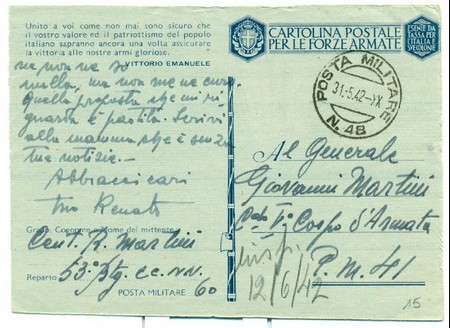 Unito a voi come non mai sono sicuro che
il vostro valore ed il patriottismo del popolo
italiano sapranno ancora una volta assicurare
la vittoria alle nostre armi gloriose.
VITTORIO EMANUELE
ne non ne so
nulla, ma non me ne curo
quella proposta che mi ri
guarda è partita. Scrivi
alla mamma che è senza
tue notizie.-
Abbracci cari
tuo Renato
Grado, Cognome e Nome del mittente
Cent. R. Martini
Reparto 53° Btg. CC.NN.
POSTA MILITARE 60
CARTOLINA POSTALE
PER LE FORZE ARMATE
ESENTE DA
TASSA PER
L'ITALIA E
SVE COLONIE
POSTA MILITARE
31.5.42-XX
N. 48
Al Generale
Giovanni Martini
Corpo d'Armata
P.M. 41
risp.
12/6/42
15